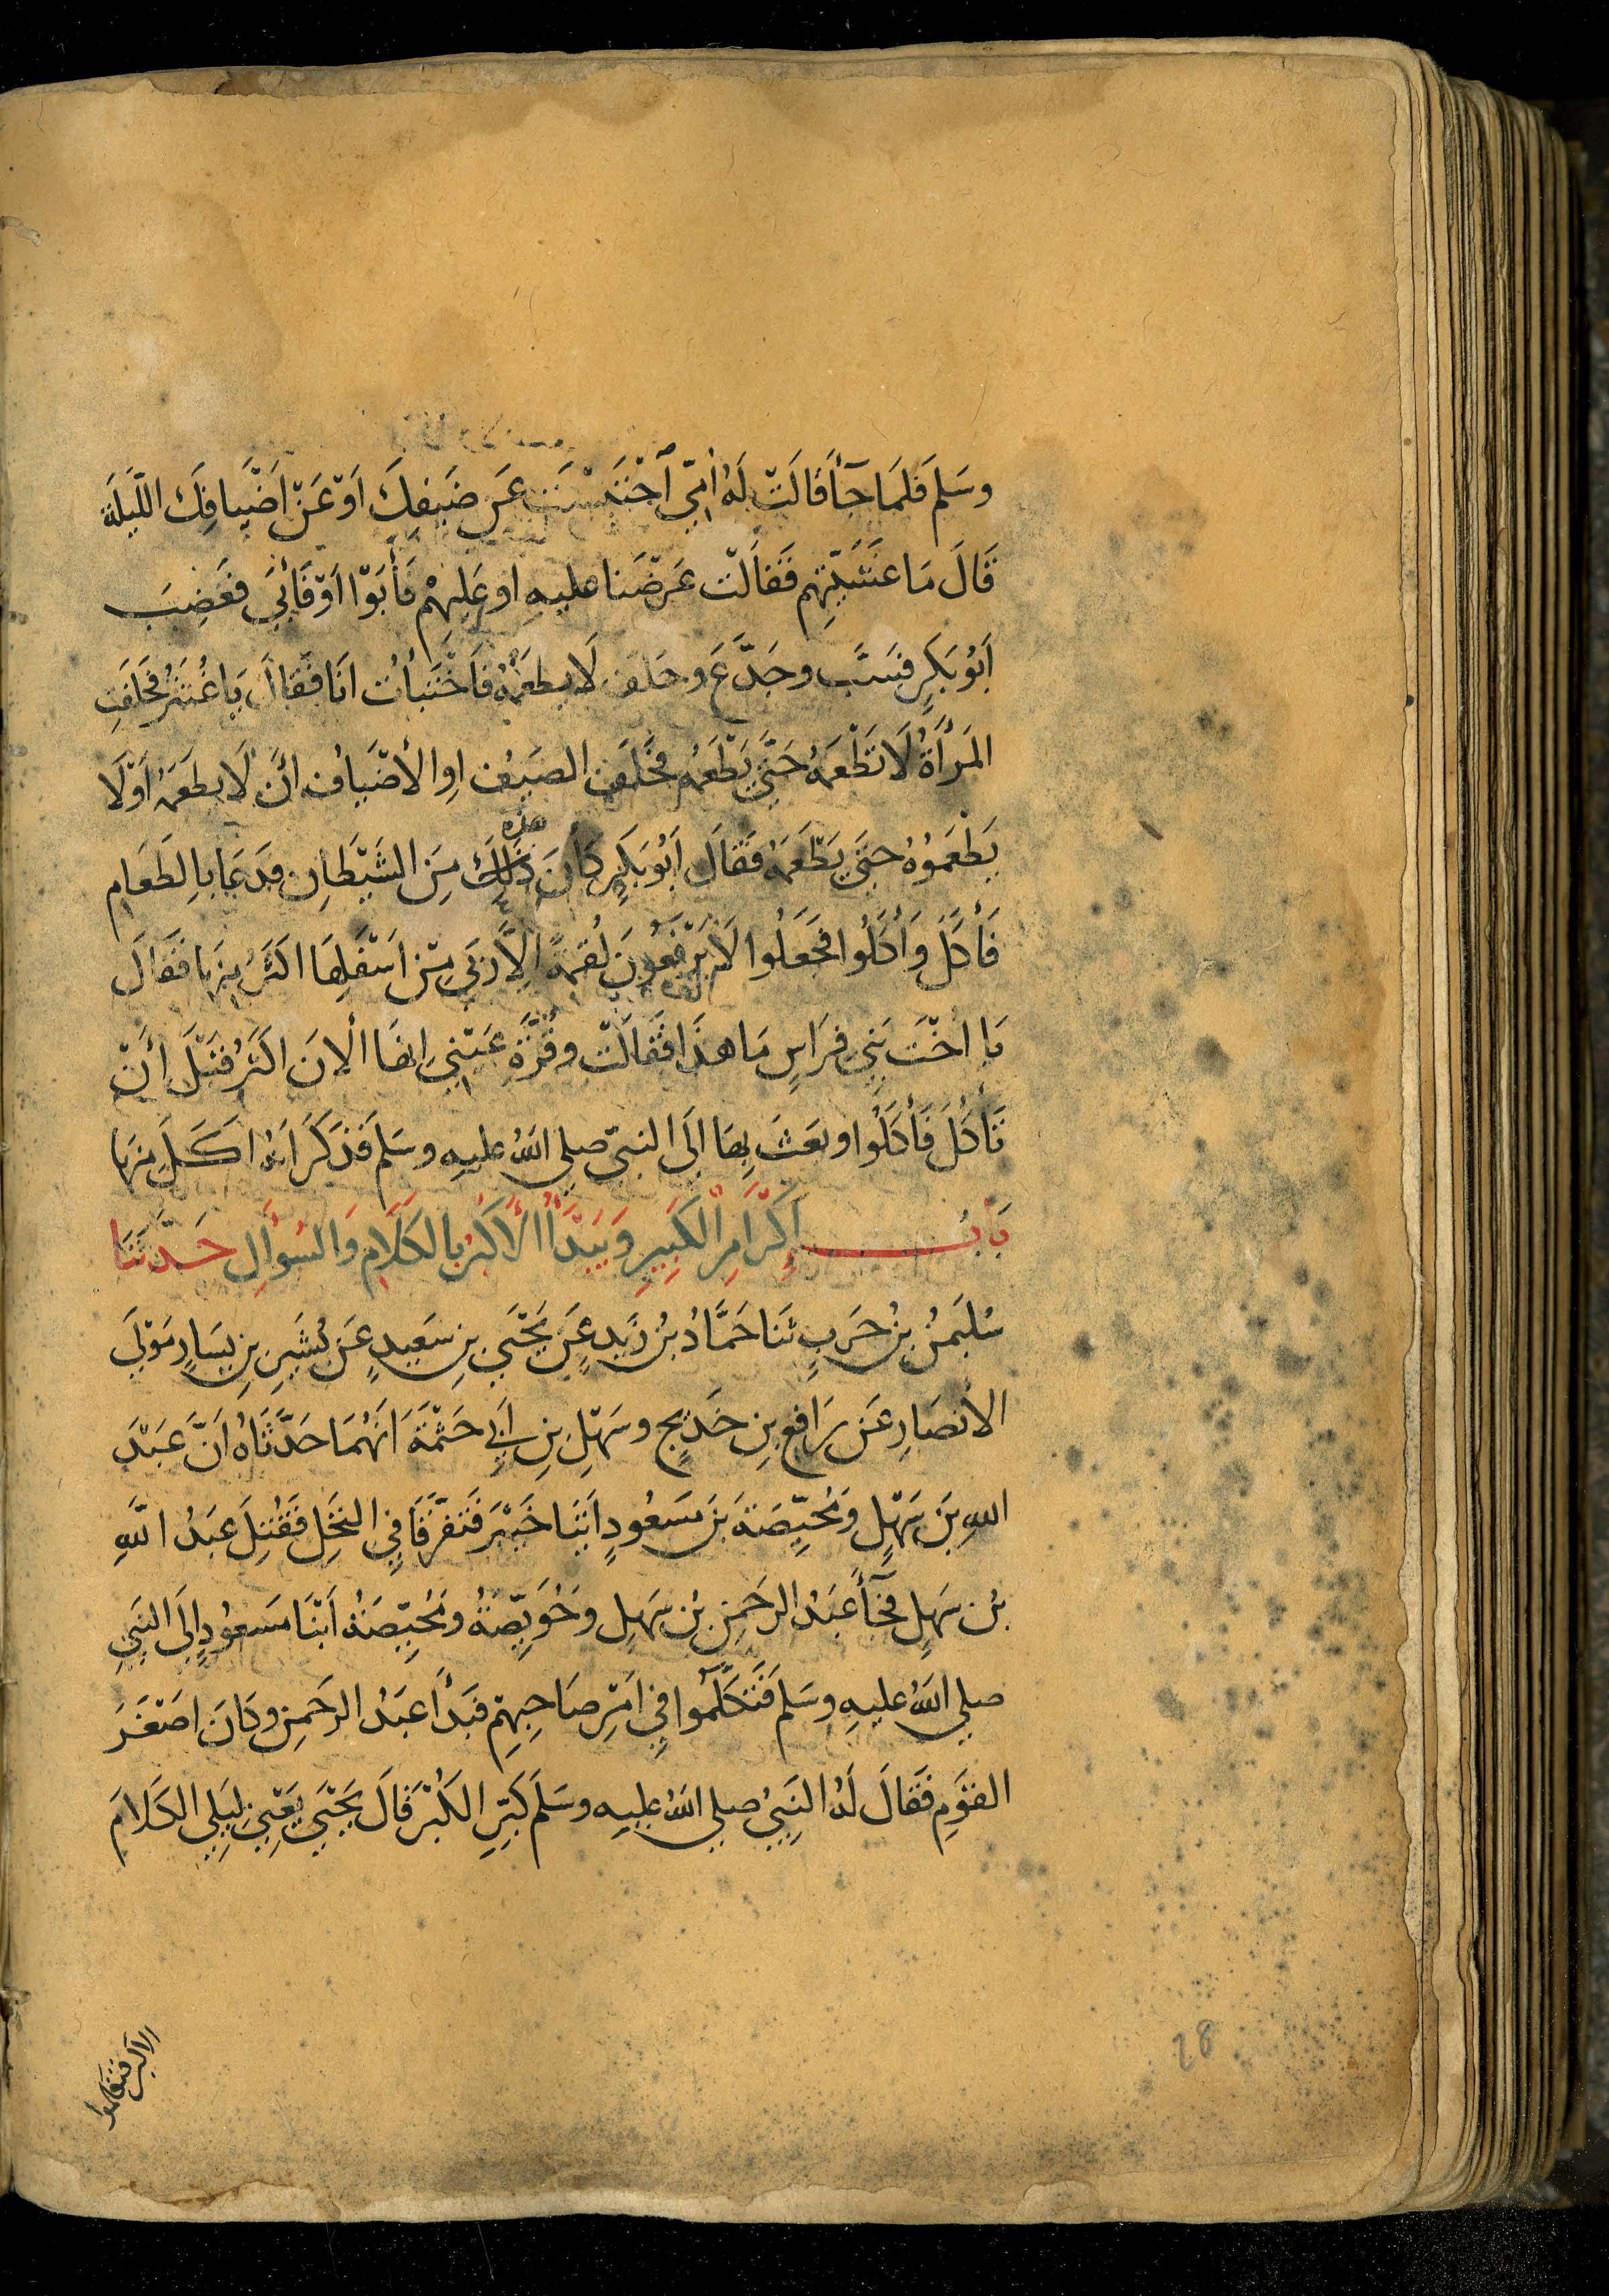 وسَلمَ فَلمَا جَآأ فَالَتْ لَهُ اُمِّي اَحْتَبَسْتَ عَن ضَيفِكَ اَوْ عَنْ اَضْيَافِكَ اللّيلَةَ
قَالَ مَا عَشَّيْتِهِم فَقَالَتْ عَرَضْنَا عليهِ او عَلِيهِمْ فَأَبَوْا اَوْ فَأَبَي فغَضِبَ
اَبُوْ بَكرٍ فَسَبَّ وجَدَّعَ وحَلفَ لَا يطعَمُهُ فَاخْتَبأتُ انَا فَقَالَ يَا غُنثَرُ فحَلفَتِ
المَرأَةُ لَا تَطْعَمُهُ حَتَّي يَطْعَمَهُ فحَلَفَ الضيفُ اوِ الأضيَافُ انْ لَا يطعَمَهُ اَوْ لَا
يَطْعَمُوهُ حَتَي يَطْعَمَهُ فَقَالَ اَبُو بَكرٍ كأن ذَلِكَ هذه مِنَ الشَيْطَانِ فَدَعَا بِالطَعَامِ
فَأَكَلَ وَأَكَلُوا فجَعَلُوا لَا يَرْفَعُونَ لُقمَةً اِلاَّ رَبَي مِنْ اَسْفَلِهَا اَكثَرُ مِنهَا فَقَالَ
يَا اختَ بَنِي فِرَاسٍ مَا هذَا فَقَالَتْ وقُرَّةِ عَيْنِي انهَا الانَ اكثَرُ قَبْلَ أَنْ
نَأكُلَ فَأَكَلُوا وبَعَثَ بِهَا اِلَى النبيّ صلي اللهُ عليهِ وسَلمَ فَذكَرَ اَنهُ اكَلَ مِنهَا
بَابُ اِكْرَامِ الْكَبِيرِ وَيَبَدَأُ الْأَكبَرُ بالكَلَامِ وَالسُوَالِ حَدَّثَنَا
سُليمٰنُ بنُ حَربٍ ثنَا حَمَّادُ بنُ زَيدٍ عَن يَحْيَي بنِ سَعِيدٍ عَن بُشَيرِ بنِ يسَارٍ مَوْلَي
الأنصَارِ عَن رَافِعِ بنِ خَدِيجٍ وسَهْلِ بنِ اَبِي حَثْمَةَ اَنهُمَا حَدَّثَاهُ اَنَّ عَبْدَ
اللهِ بنَ سَهْلٍ وَمُحَيِّصَةَ بنَ مَسعُودٍ اَتَيَا خَيْبَرَ فَتَفَرَّقَا فِي النخْلِ فَقُتِلَ عَبدُ اللهِ
بنُ سَهلٍ فجَآأ عَبدُ الرحمنِ بْنُ سَهلٍ وحُوَيِّصَةُ ومُحَيِّصَةُ اَبْنَا مَسعُودٍ اِلَى النبي
صلي اللهُ عليهِ وسَلمَ فَتَكَلَّمُوا فِي اَمْرِ صَاحِبِهِم فَبدَأ عَبدُ الرحمنِ وكَانَ اصْغَرَ
القَومِ فَقَالَ لَهُ النَبِيُ صلي اللهُ عليهِ وسَلَمَ كَبِّرِ الكُبْرَ قَالَ يَحْيَي يَعْنِي لِيَلِي الكَلَامَ
الاكبر فتكلموا
28